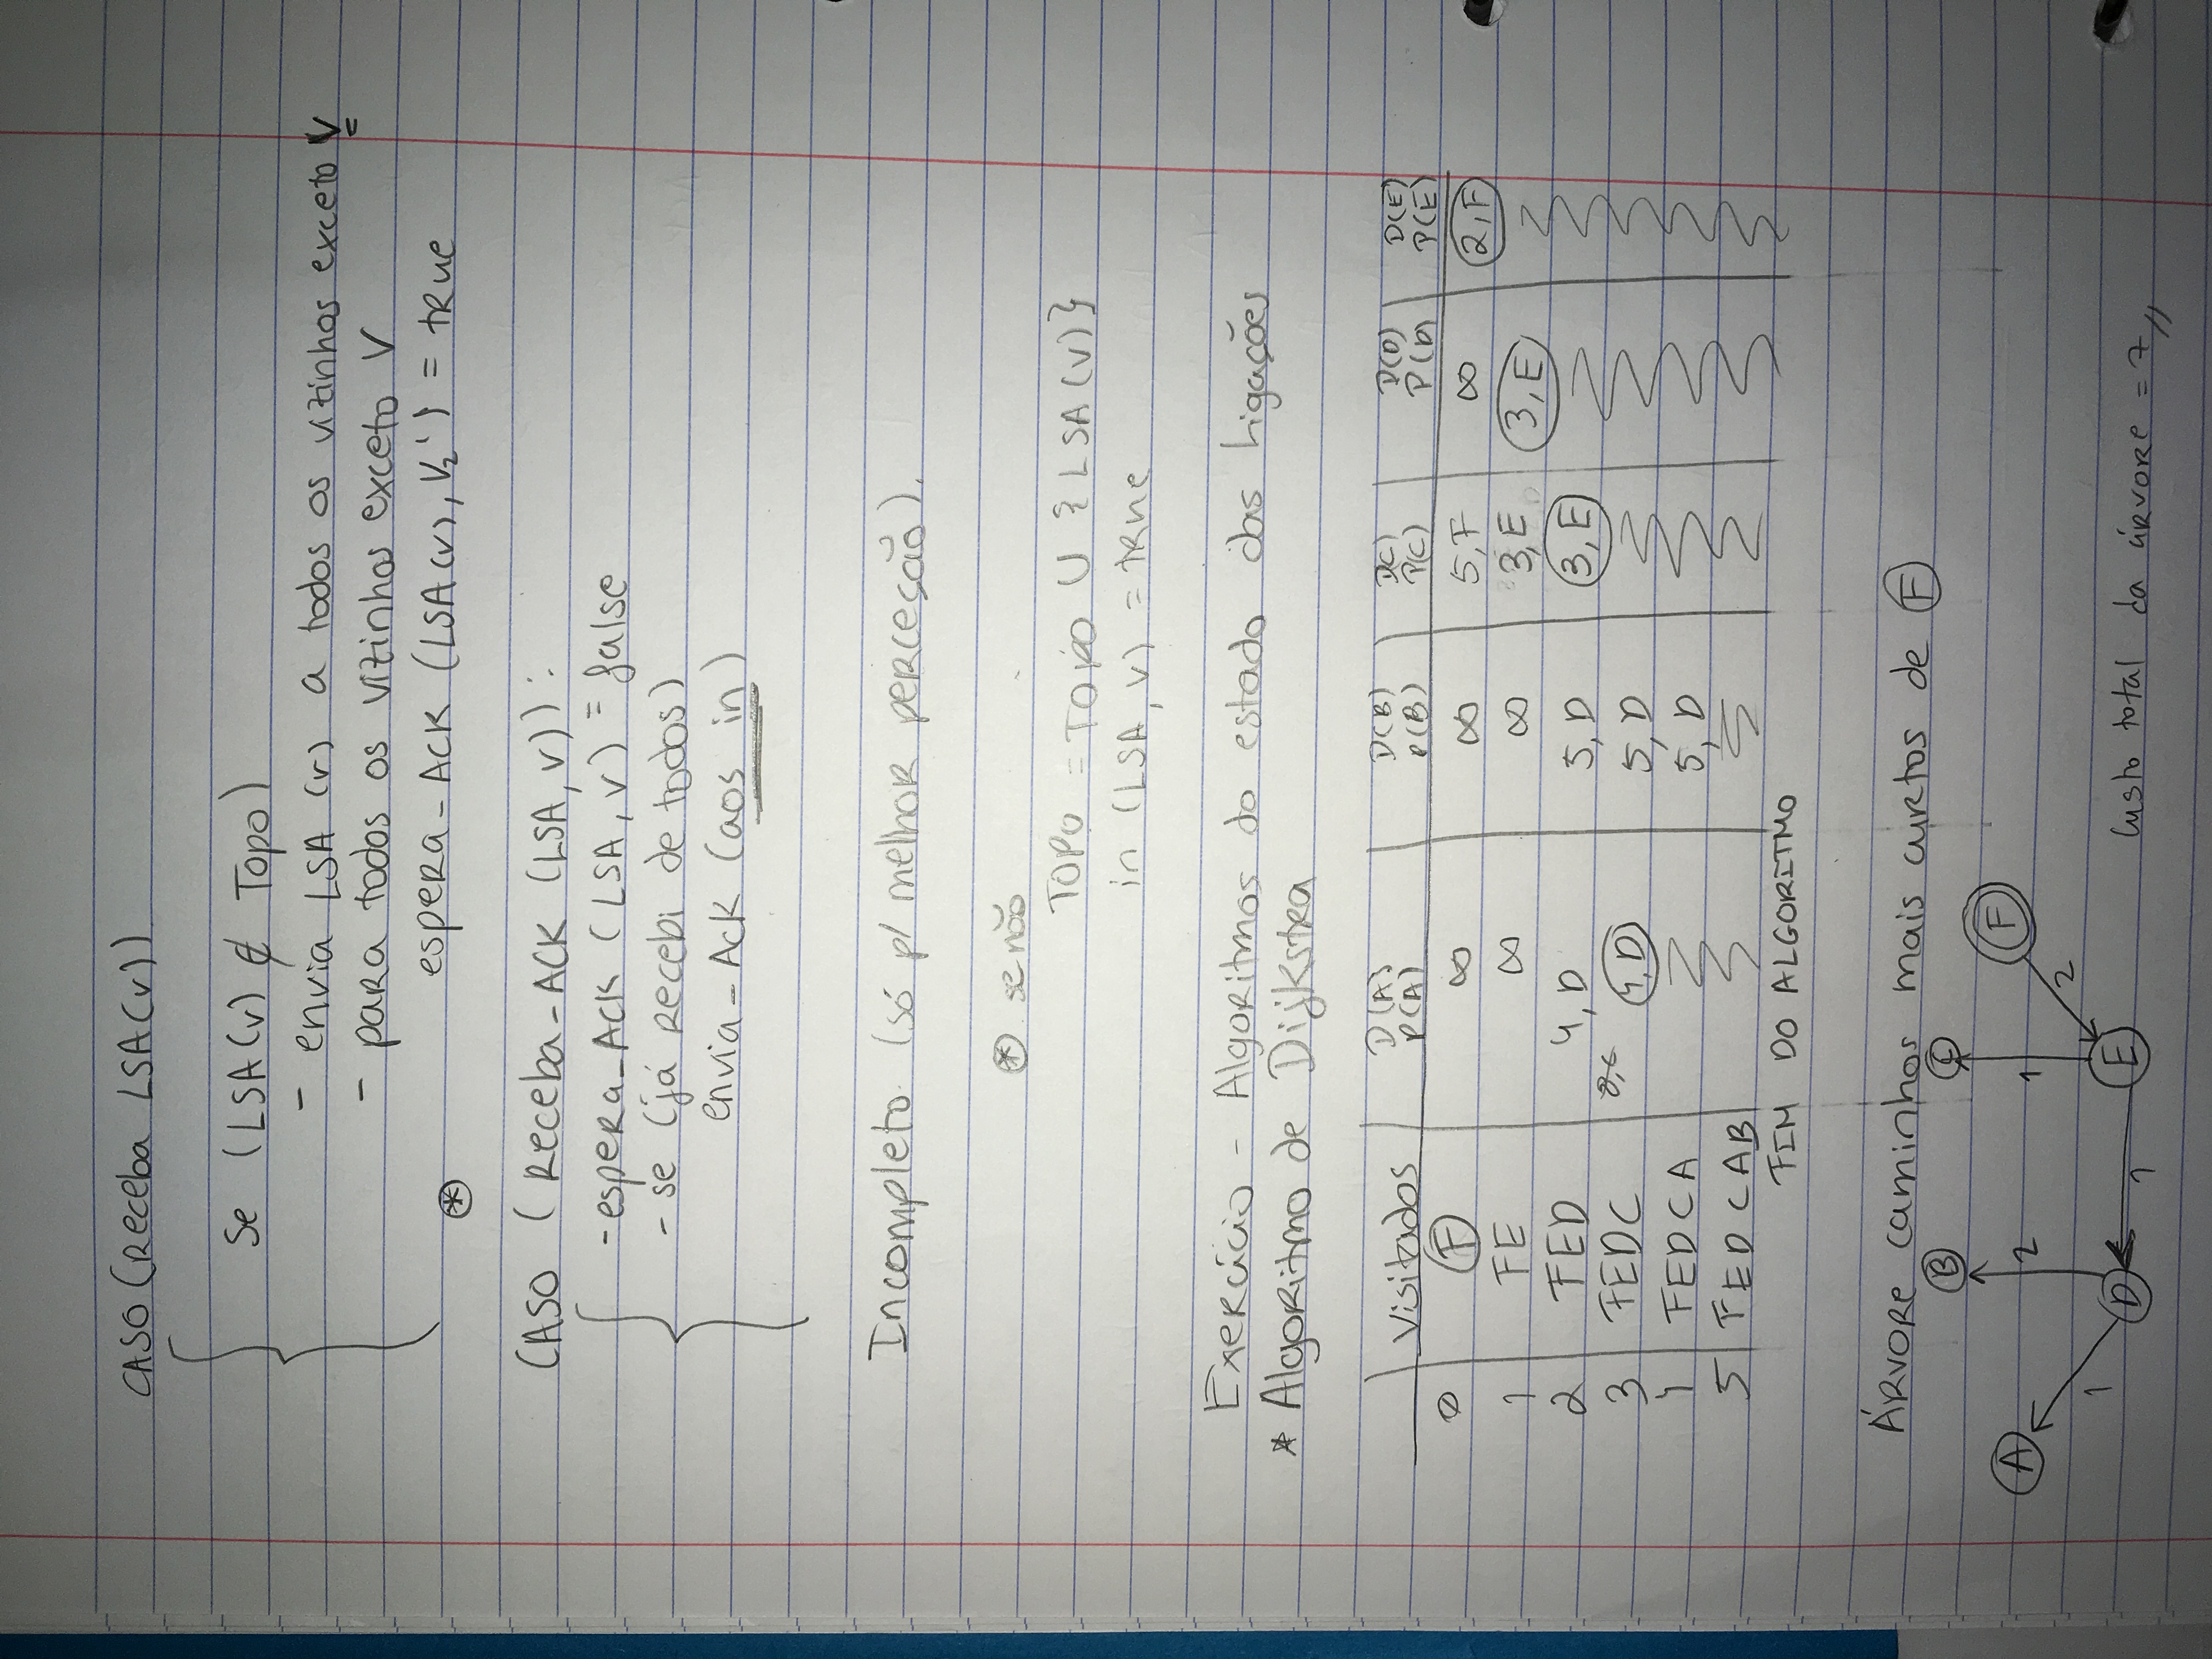 CASO (Receba LSA(v))
Se (LSA(v) ∉ Topo)
- envia LSA (v) a todos os vizinhos exceto V
- para todos os vizinhos exceto V
espera_ACK (LSA(v), V2') = true
⊛
CASO (Receba_ACK (LSA, v)):
- espera_ACK (LSA, v) = false
- se (já recebi de todos)
envia_Ack (aos in)
Incompleto (só p/ melhor perceção).
⊛ se não
TOPO = TOPO U {LSA(v)}
in (LSA, v) = true
Exercício - Algoritmos do estado das Ligações
* Algoritmo de Dijkstra
Visitados D(A) D(B) D(C) D(D) D(E)
P(A) P(B) P(C) P(D) P(E)
0 F ∞ ∞ 5,F ∞ 2,F
1 FE ∞ ∞ 3,E 3,E
2 FED 4,D 5,D 3,E
3 FEDC 4,D 5,D
4 FEDCA 5,D
5 FEDCAB
FIM DO ALGORITMO
Árvore caminhos mais curtos de F
B C
A 2 1 F
1 2
D 1 E
Custo total da árvore = 7,,